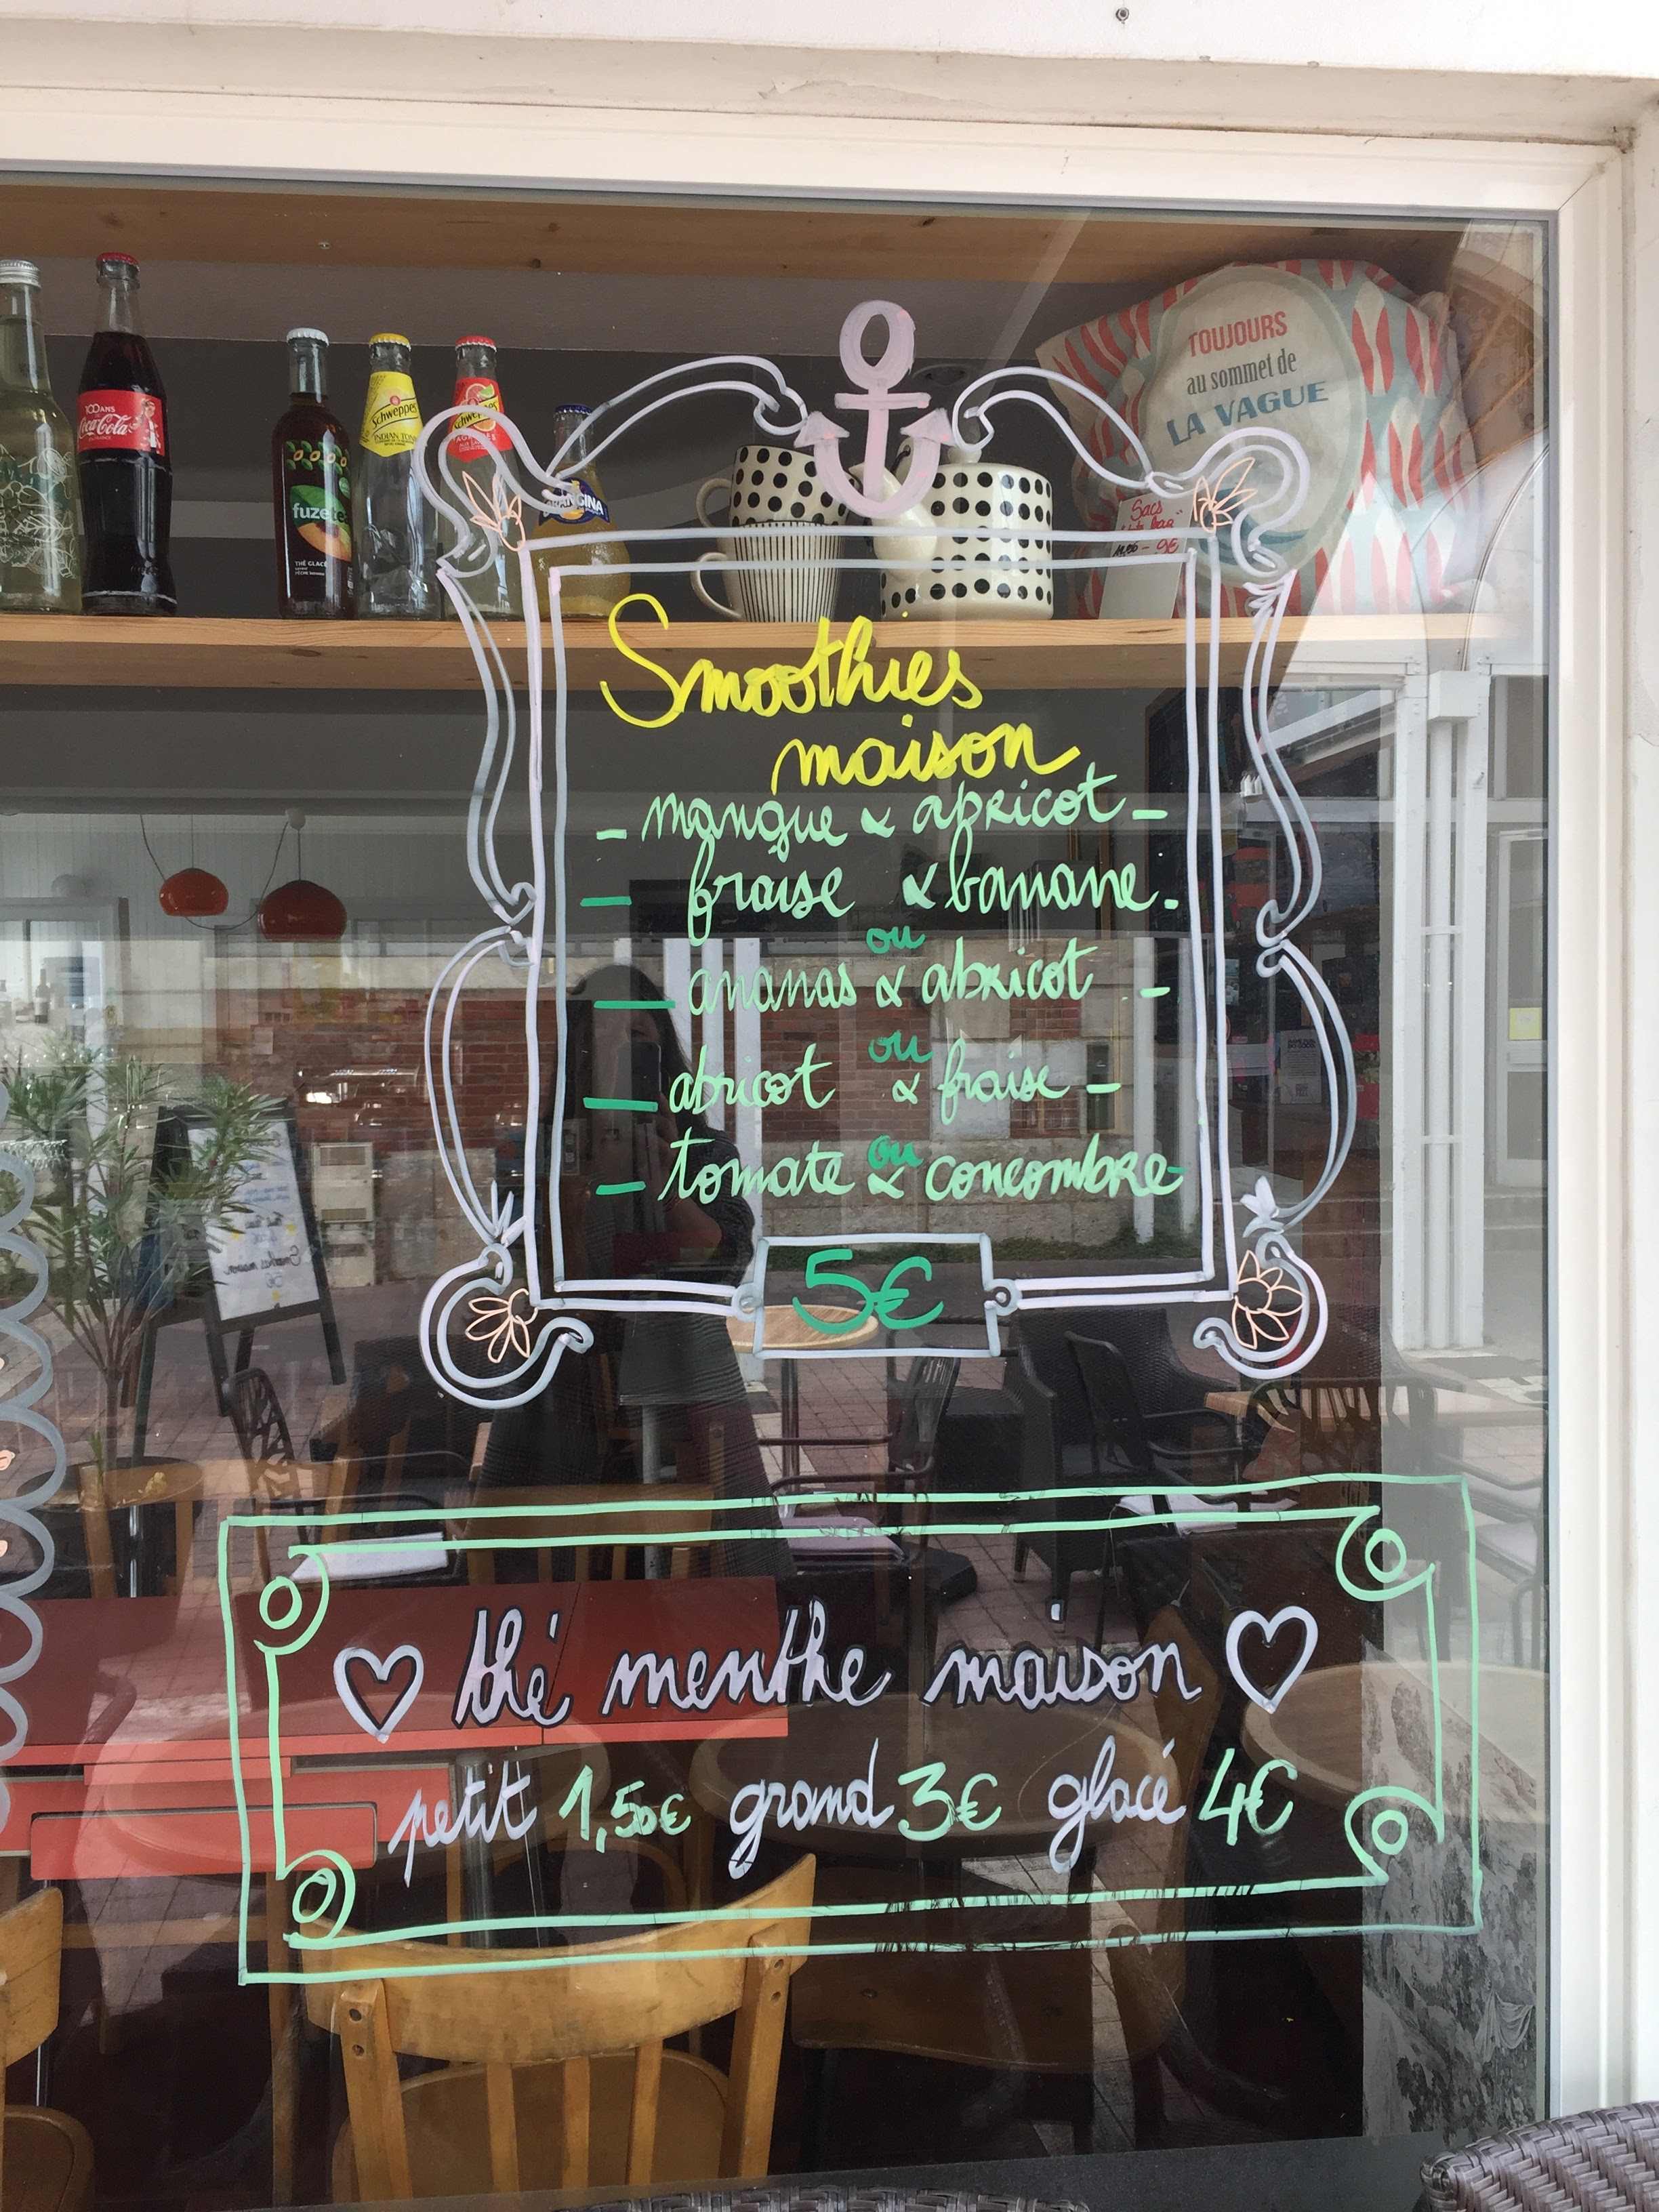 TOUJOURS
au sommet de
LA VAGUE
100 ANS
Coca-Cola
Schweppes
INDIAN TONIC
fuzetea
THÉ GLACÉ
ORANGINA
Sacs
9€
Smoothies
maison
- mangue & abricot -
- fraise & banane -
ou
- ananas & abricot -
ou
- abricot & fraise -
ou
- tomate & concombre -
5€
♡ thé menthe maison ♡
petit 1,50€ grand 3€ glacé 4€